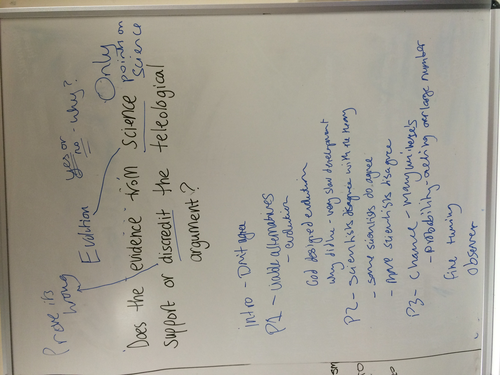 Prove it's
wrong
Evolution
yes or
no - why?
Only
points on
science
Does the evidence from science
support or discredit the teleological
argument?
Intro -
P1 - viable alternatives
- evolution
God designed evolution
why did he - very slow development
P2 - Scientists disagree with the theory
- some scientists do agree
- more scientists disagree
P3 - Chance - many universes
- probability - acting over large number
Fine tuning
observer